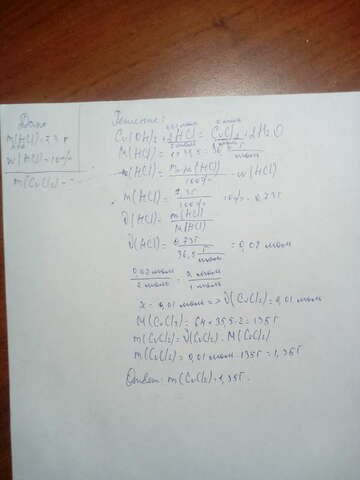 Дано
m(HCl)=7,3 г
р-ра
w(HCl)=10%
m(CuCl2)-?
Решение:
0,02 моль x моль
Cu(OH)2+2HCl=CuCl2+2H2O
2 моль 1 моль
M(HCl)=1+35,5=36,5 г/моль
m(HCl)=mр-ра(HCl)/100% · w(HCl)
m(HCl)=7,3г/100% · 10%=0,73г
ν(HCl)=m(HCl)/M(HCl)
ν(HCl)=0,73г/36,5 г/моль=0,02 моль
0,02 моль/2 моль=x моль/1 моль
x=0,01 моль=>ν(CuCl2)=0,01 моль
M(CuCl2)=64+35,5·2=135г
m(CuCl2)=ν(CuCl2)·M(CuCl2)
m(CuCl2)=0,01 моль·135г=1,35г
Ответ: m(CuCl2)=1,35г.